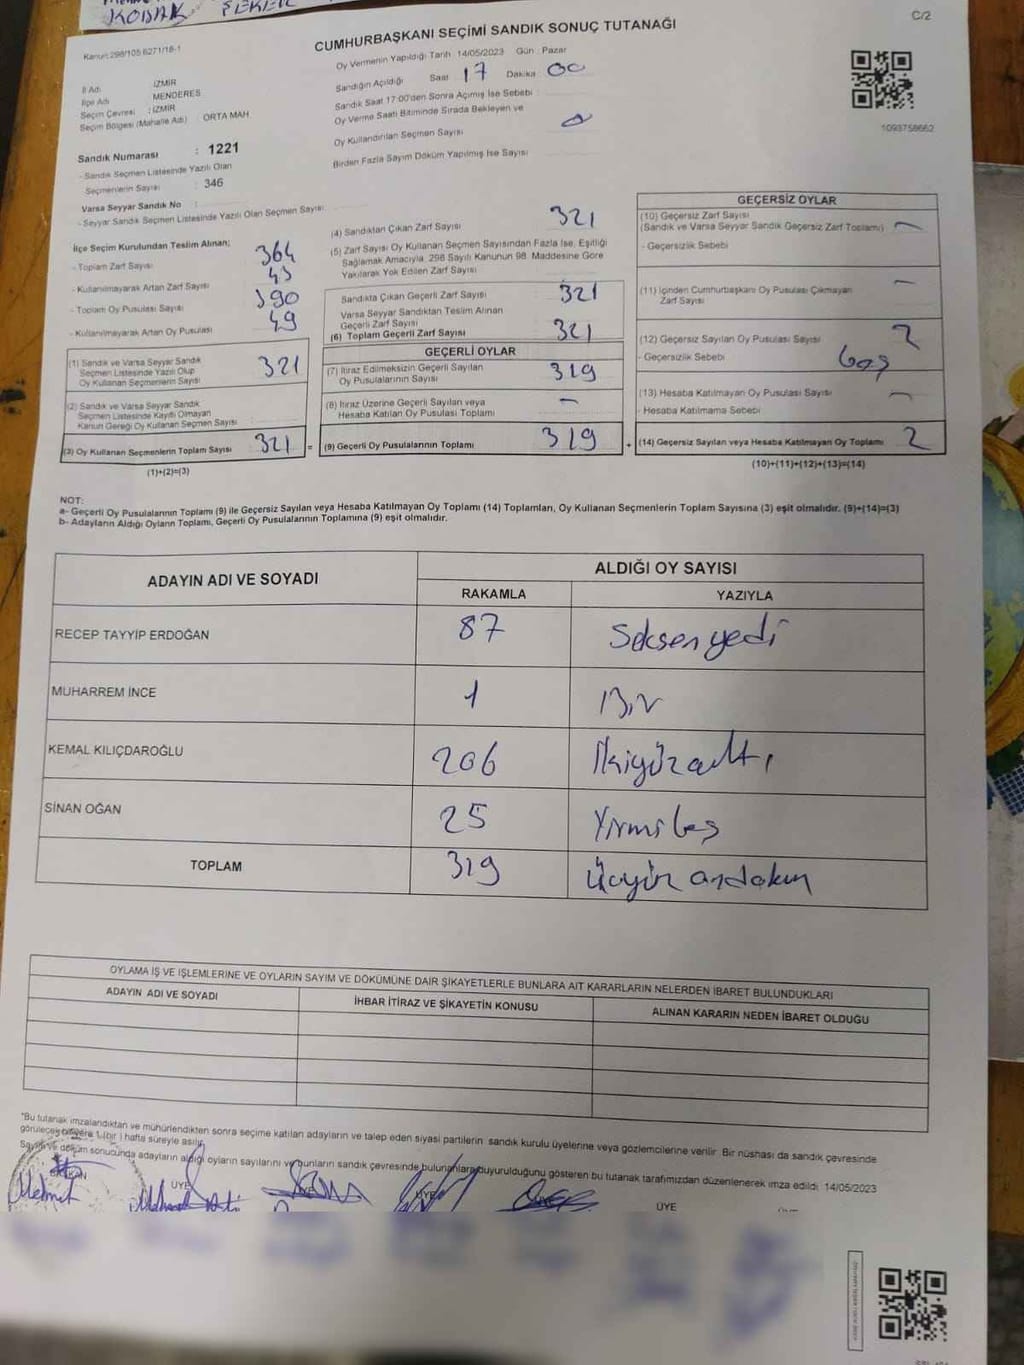 KOBAK
C/2
CUMHURBAŞKANI SEÇİMİ SANDIK SONUÇ TUTANAĞI
Kanun: 298/105 6271/18-1
Oy Vermenin Yapıldığı Tarih 14/05/2023 Gün : Pazar
Sandığın Açıldığı Saat 17 Dakika 00
Sandık Saat 17:00'den Sonra Açımış İse Sebebi :
Oy Verme Saati Bitiminde Sırada Bekleyen ve
Oy Kullandırılan Seçmen Sayısı
Birden Fazla Sayım Döküm Yapılmış İse Sayısı
İl Adı : İZMİR
İlçe Adı MENDERES
Seçim Çevresi : İZMİR
Seçim Bölgesi (Mahalle Adı) : ORTA MAH
1093758662
Sandık Numarası : 1221
- Sandık Seçmen Listesinde Yazılı Olan
Seçmenlerin Sayısı : 346
Varsa Seyyar Sandık No :
- Seyyar Sandık Seçmen Listesinde Yazılı Olan Seçmen Sayısı
İlçe Seçim Kurulundan Teslim Alınan;
- Toplam Zarf Sayısı 364
- Kullanılmayarak Artan Zarf Sayısı 43
- Toplam Oy Pusulası Sayısı 390
- Kullanılmayarak Artan Oy Pusulası 49
(1) Sandık ve Varsa Seyyar Sandık
Seçmen Listesinde Yazılı Olup
Oy Kullanan Seçmenlerin Sayısı 321
(2) Sandık ve Varsa Seyyar Sandık
Seçmen Listesinde Kaydı Olmayan
Kanun Gereği Oy Kullanan Seçmen Sayısı
(3) Oy Kullanan Seçmenlerin Toplam Sayısı 321 =
(1)+(2)=(3)
(4) Sandıktan Çıkan Zarf Sayısı 321
(5) Zarf Sayısı Oy Kullanan Seçmen Sayısından Fazla İse, Eşitliği
Sağlamak Amacıyla, 298 Sayılı Kanunun 98. Maddesine Göre
Yakılarak Yok Edilen Zarf Sayısı
Sandıkta Çıkan Geçerli Zarf Sayısı 321
Varsa Seyyar Sandıktan Teslim Alınan
Geçerli Zarf Sayısı
(6) Toplam Geçerli Zarf Sayısı 321
GEÇERLİ OYLAR
(7) İtiraz Edilmeksizin Geçerli Sayılan
Oy Pusulalarının Sayısı 319
(8) İtiraz Üzerine Geçerli Sayılan veya
Hesaba Katılan Oy Pusulası Toplamı –
(9) Geçerli Oy Pusulalarının Toplamı 319 +
GEÇERSİZ OYLAR
(10) Geçersiz Zarf Sayısı
(Sandık ve Varsa Seyyar Sandık Geçersiz Zarf Toplamı) –
- Geçersizlik Sebebi
(11) İçinden Cumhurbaşkanı Oy Pusulası Çıkmayan
Zarf Sayısı –
(12) Geçersiz Sayılan Oy Pusulası Sayısı 2
- Geçersizlik Sebebi boş
(13) Hesaba Katılmayan Oy Pusulası Sayısı –
- Hesaba Katılmama Sebebi
(14) Geçersiz Sayılan veya Hesaba Katılmayan Oy Toplamı 2
(10)+(11)+(12)+(13)=(14)
NOT:
a- Geçerli Oy Pusulalarının Toplamı (9) ile Geçersiz Sayılan veya Hesaba Katılmayan Oy Toplamı (14) Toplamları, Oy Kullanan Seçmenlerin Toplam Sayısına (3) eşit olmalıdır. (9)+(14)=(3)
b- Adayların Aldığı Oyların Toplamı, Geçerli Oy Pusulalarının Toplamına (9) eşit olmalıdır.
ADAYIN ADI VE SOYADI
ALDIĞI OY SAYISI
RAKAMLA YAZIYLA
RECEP TAYYİP ERDOĞAN 87 Seksen yedi
MUHARREM İNCE 1 Bir
KEMAL KILIÇDAROĞLU 206 İkiyüzaltı
SİNAN OĞAN 25 Yirmi beş
TOPLAM 319 Üçyüz ondokuz
OYLAMA İŞ VE İŞLEMLERİNE VE OYLARIN SAYIM VE DÖKÜMÜNE DAİR ŞİKAYETLERLE BUNLARA AİT KARARLARIN NELERDEN İBARET BULUNDUKLARI
ADAYIN ADI VE SOYADI
İHBAR İTİRAZ VE ŞİKAYETİN KONUSU
ALINAN KARARIN NEDEN İBARET OLDUĞU
*Bu tutanak imzalandıktan ve mühürlendikten sonra seçime katılan adayların ve talep eden siyasi partilerin sandık kurulu üyelerine veya gözlemcilerine verilir. Bir nüshası da sandık çevresinde
görülecek bir yere 1 (bir ) hafta süreyle asılır.
Sayım ve döküm sonucunda adayların aldığı oyların sayılarını ve bunların sandık çevresinde bulunanlara duyurulduğunu gösteren bu tutanak tarafımızdan düzenlenerek imza edildi. 14/05/2023
BAŞKAN ÜYE ÜYE ÜYE ÜYE ÜYE
Mehmet